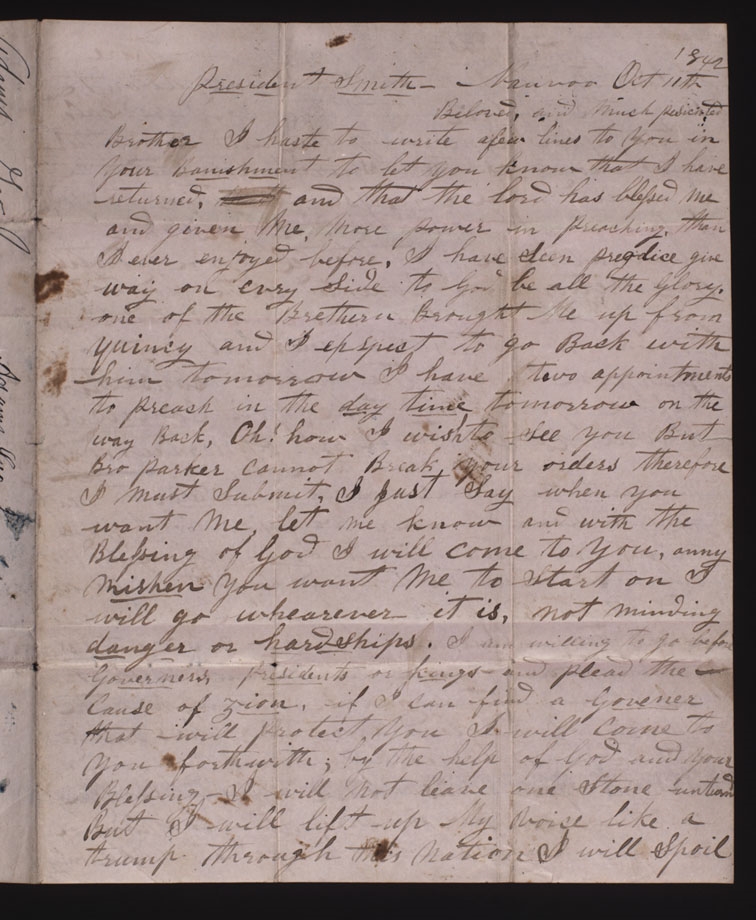 1842
President Smith — Nauvoo Oct 11th
Beloved, and Much persicuted
Brother I haste to write a few lines to You in
Your banishment to let you know that I have
returned, and that the lord has blessed me
and given Me, More power in preaching, than
I ever enjoyed before, I have seen prejdice give
way on evry side to God be all the Glory.
one of the Bretheren Brought Me up from
quincy and I expect to go Back with
him tomorrow I have two appointments
to preach in the day time tomorrow on the
way Back, Oh! how I wish to see you But
Bro Parker cannot Break your orders therefore
I Must Submit, I just Say when you
want Me, let me know and with the
Blessing of God I will come to You, anny
mishen You want Me to Start on I
will go whearever it is, not minding
danger or hardships. I am willing to go before
Governers, presidents or kings and plead the —
Cause of zion, if I can find a Govener
that will protect You I will come to
You forthwith; by the help of God and your
Blessing — I will not leave one Stone unturnd
But I will lift up My Voice like a
trump through this Nation I will Spoil
Adams